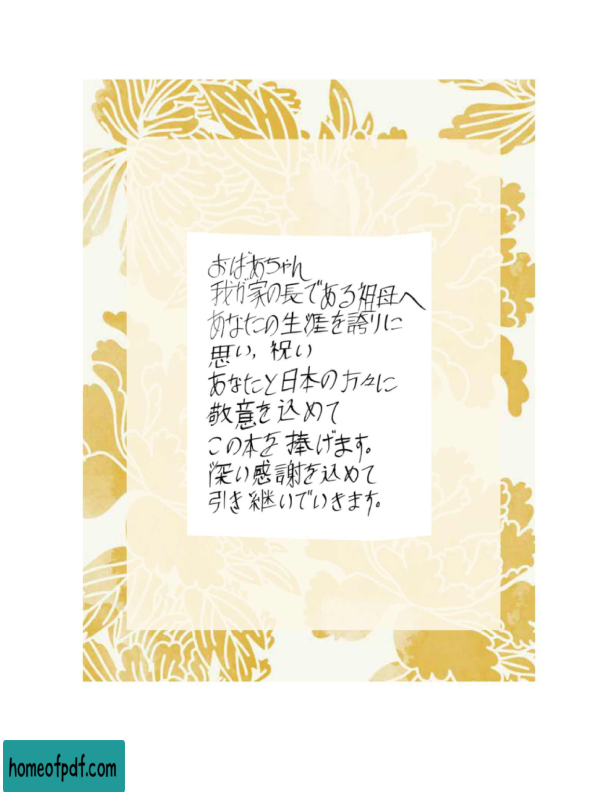 おばあちゃん
我が家の長である祖母へ
あなたの生涯を誇りに
思い, 祝い
あなたと日本の方々に
敬意を込めて
この本を捧げます。
深い感謝を込めて
引き継いでいきます。
homeofpdf.com